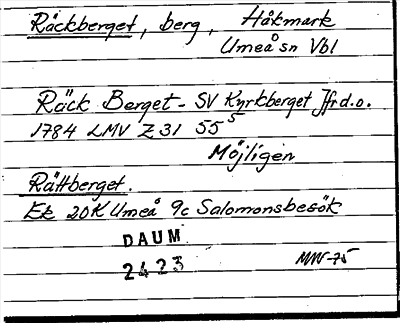 Räckberget, berg, Håkmark
Umeå sn Vbl
Räck Berget - SV Kyrkberget Jfr d.o.
1784 LMV Z 31 55⁵
Möjligen
Rättberget.
Ek 20K Umeå 9c Salomonsbesök
DAUM
2423
MW-75